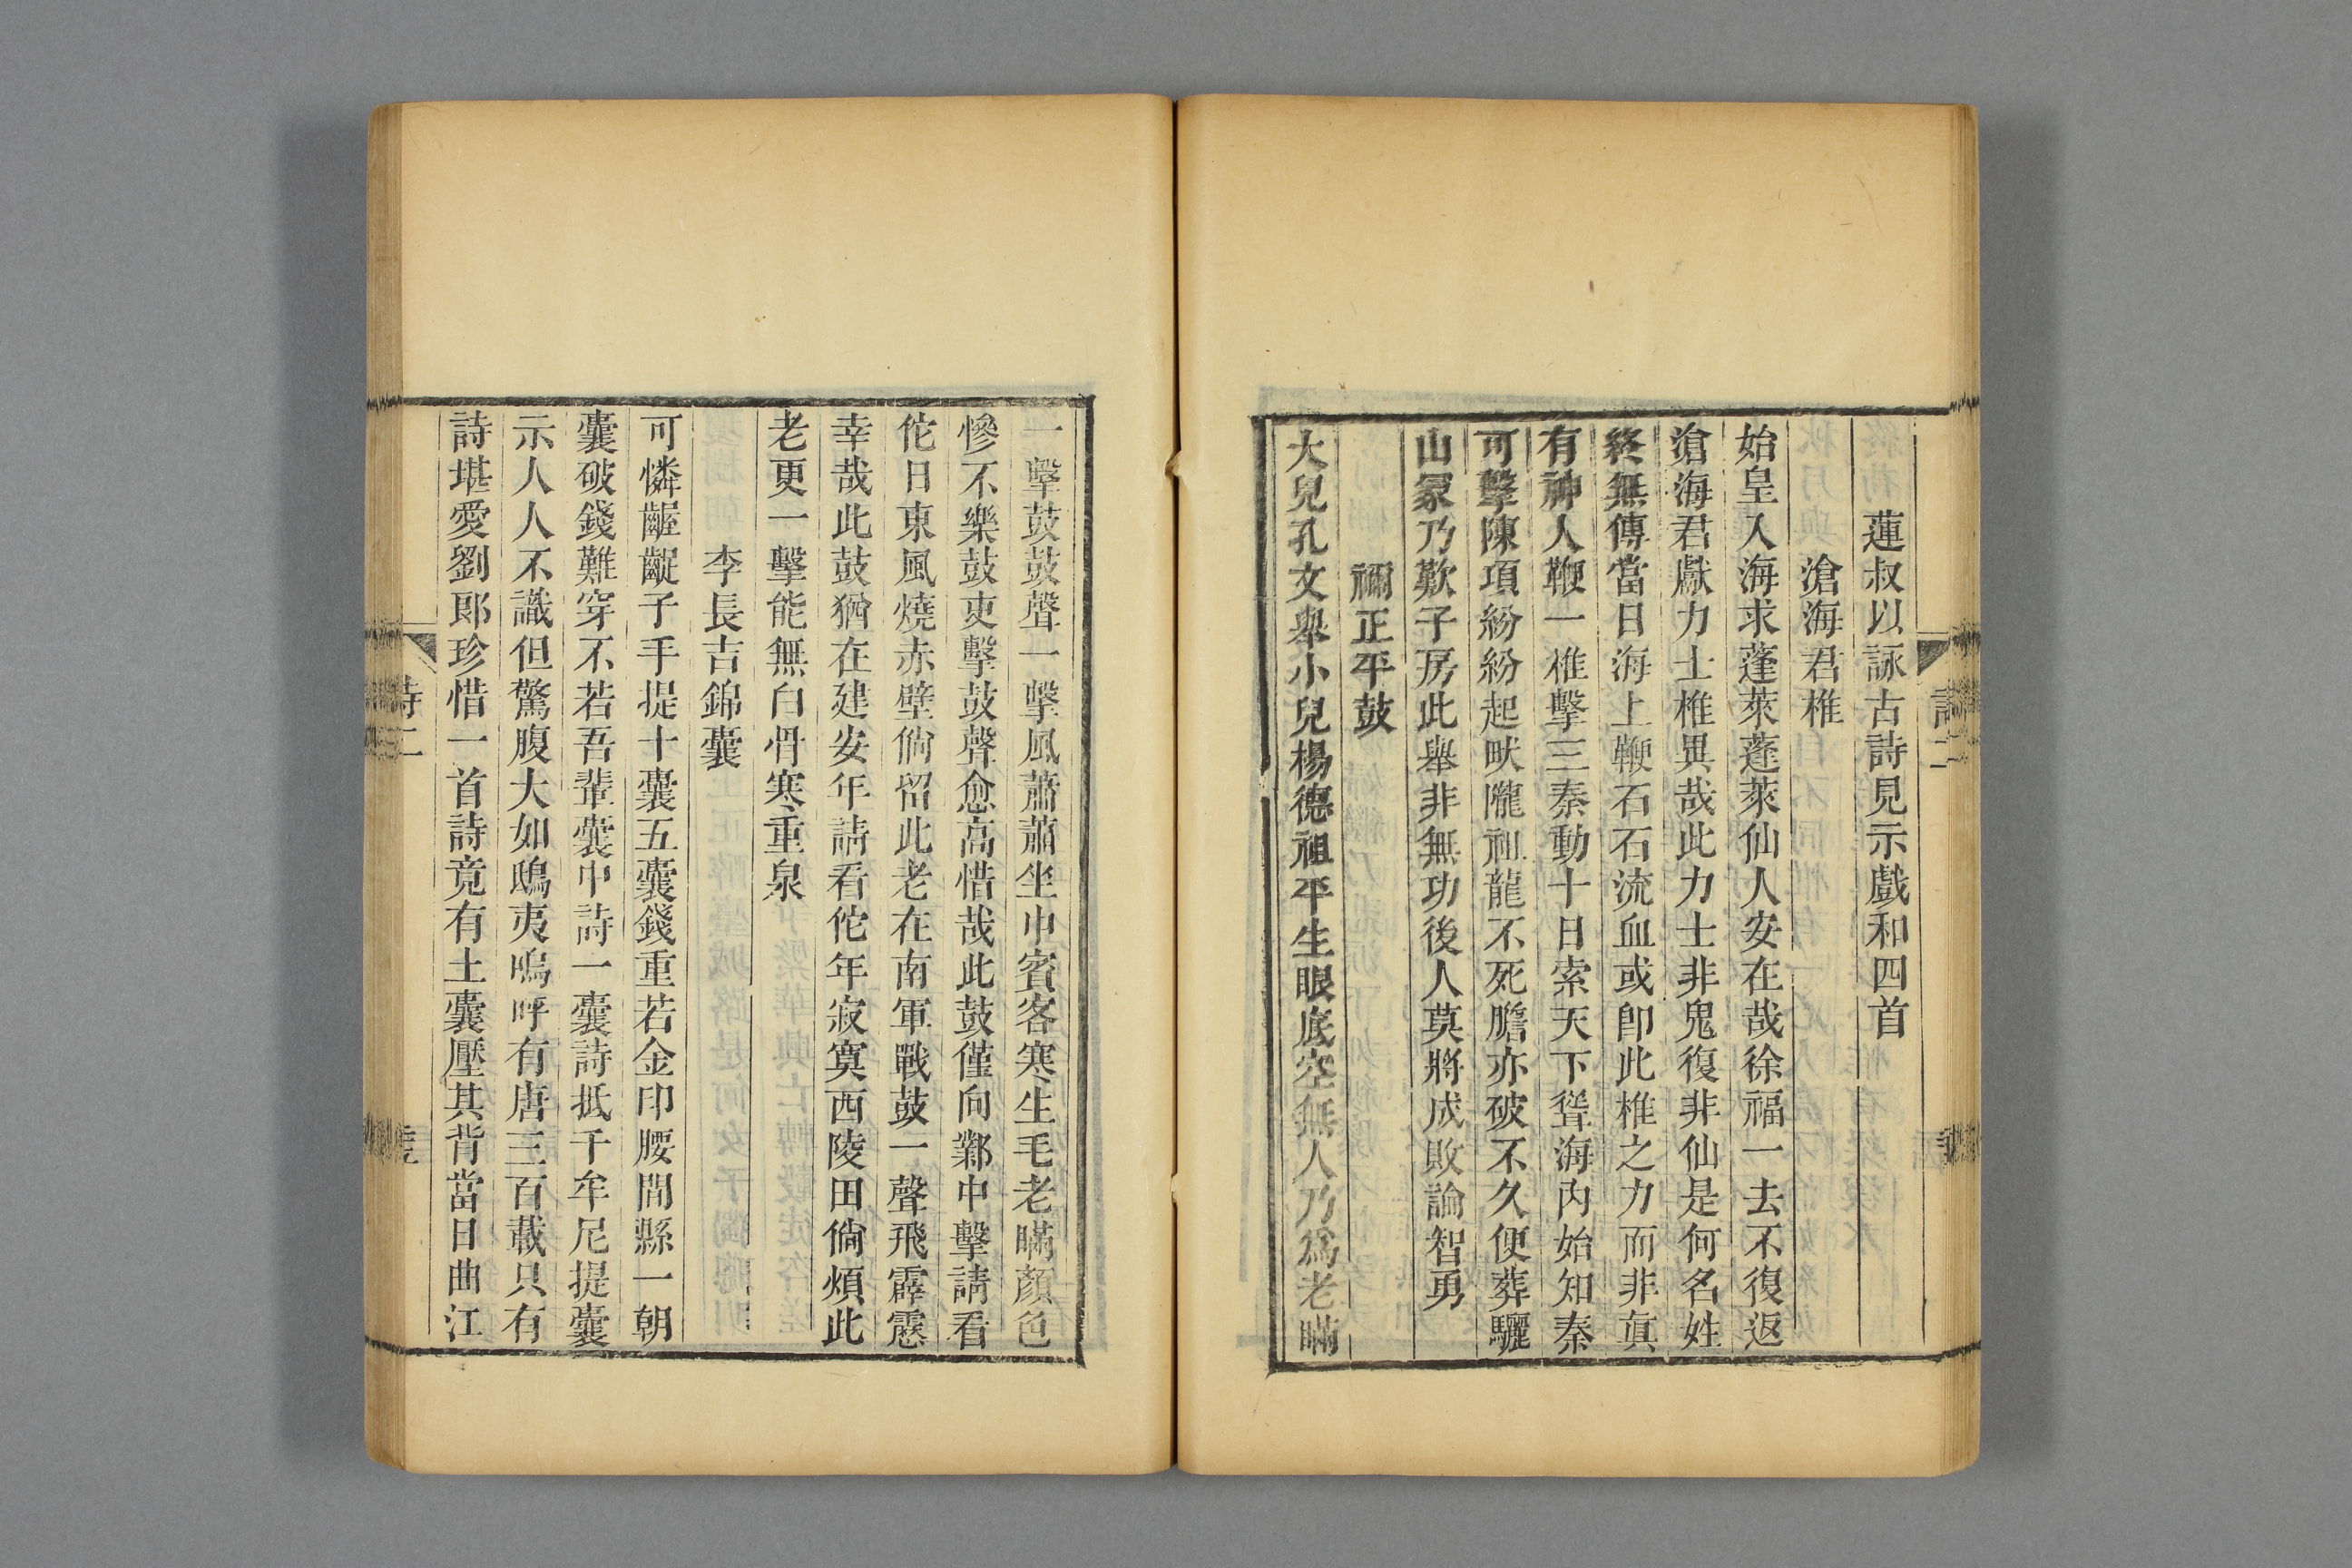 蓮叔以詠古詩見示戲和四首
滄海君椎
始皇入海求蓬萊蓬萊仙人安在哉徐福一去不復返
滄海君獻力士椎異哉此力士非鬼復非仙是何名姓
終無傳當日海上鞭石石流血或卽此椎之力而非眞
有神人鞭一椎擊三秦動十日索天下聳海內始知秦
可擊陳項紛紛起畎隴祖龍不死膽亦破不久便葬驪
山冢乃歎子房此舉非無功後人莫將成敗論智勇
禰正平鼓
大兒孔文舉小兒楊德祖平生眼底空無人乃爲老瞞
一擊鼓鼓聲一擊風蕭蕭坐中賓客寒生毛老瞞顏色
慘不樂鼓吏擊鼓聲愈高惜哉此鼓僅向鄴中擊請看
佗日東風燒赤壁倘留此老在南軍戰鼓一聲飛霹靂
幸哉此鼓猶在建安年請看佗年寂寞西陵田倘煩此
老更一擊能無白骨寒重泉
李長吉錦囊
可憐齷齪子手提十囊五囊錢重若金印腰間縣一朝
囊破錢難穿不若吾輩囊中詩一囊詩抵千牟尼提囊
示人人不識但驚腹大如鴟夷嗚呼有唐三百載只有
詩堪愛劉郞珍惜一首詩竟有土囊壓其背當日曲江
詩二